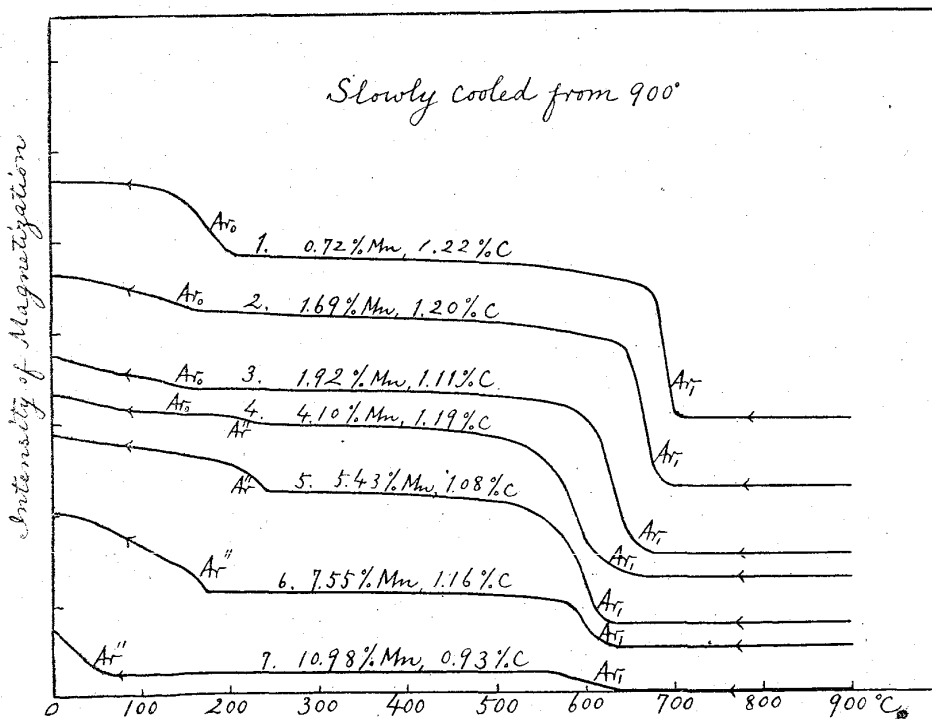 Slowly cooled from 900°
Intensity of Magnetization
Ar₀
1. 0.72%Mn, 1.22%C
Ar₁
Ar₀
2. 1.69%Mn, 1.20%C
Ar₁
Ar₀
3. 1.92%Mn, 1.11%C
Ar₁
Ar₀
Ar"
4. 4.10%Mn, 1.19%C
Ar₁
Ar"
5. 5.43%Mn, 1.08%C
Ar₁
Ar"
6. 7.55%Mn, 1.16%C
Ar₁
Ar"
7. 10.98%Mn, 0.93%C
Ar₁
0 100 200 300 400 500 600 700 800 900 °C.